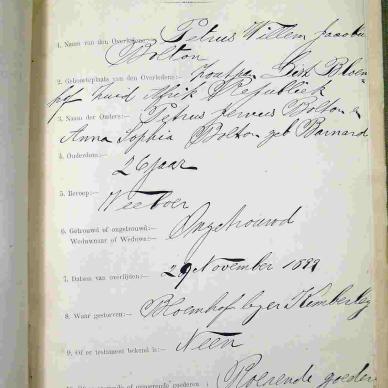 1. Naam van den Overledene:— Petrus Willem Jacobus
Bolton
2. Geboorteplaats van den Overledene:— Zoutpan Dist Bloem
hof Zuid Afrik Republiek
3. Naam der Ouders:— Petrus Bolton en
Anna Sophia Bolton geb Barnard
4. Ouderdom:— 26 jaar
5. Beroep:— Veeboer
6. Getrouwd of ongetrouwd:— Ongetrouwd
Weduwnaar of Weduwe:—
7. Datum van overlijden:— November
8. Waar gestorven:— Bloemhof by Kimberley
9. Of er testament bekend is:— Neen
goederen Roerende goederen